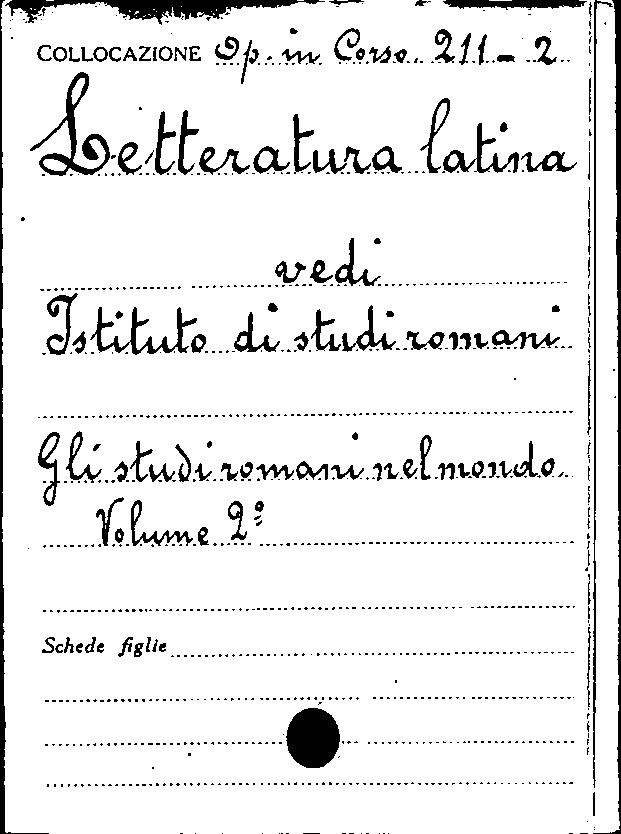 COLLOCAZIONE Op. in Corso. 211 - 2
Letteratura latina
vedi
Istituto di studi romani
Gli studi romani nel mondo.
Volume 2º
Schede figlie